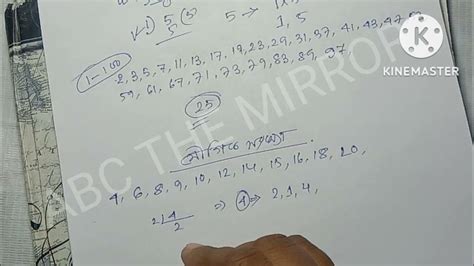 √1) 5 (5) 5 → 1x
5 1, 5
1-100
2, 3, 5, 7, 11, 13, 17, 19, 23, 29, 31, 37, 41, 43, 47, 53
59, 61, 67, 71, 73, 79, 83, 89, 97
25
যৌগিক সংখ্যা
4, 6, 8, 9, 10, 12, 14, 15, 16, 18, 20,
2 4 ⇒ 4 ⇒ 2, 1, 4,
2
KINEMASTER
ABC THE MIRROR